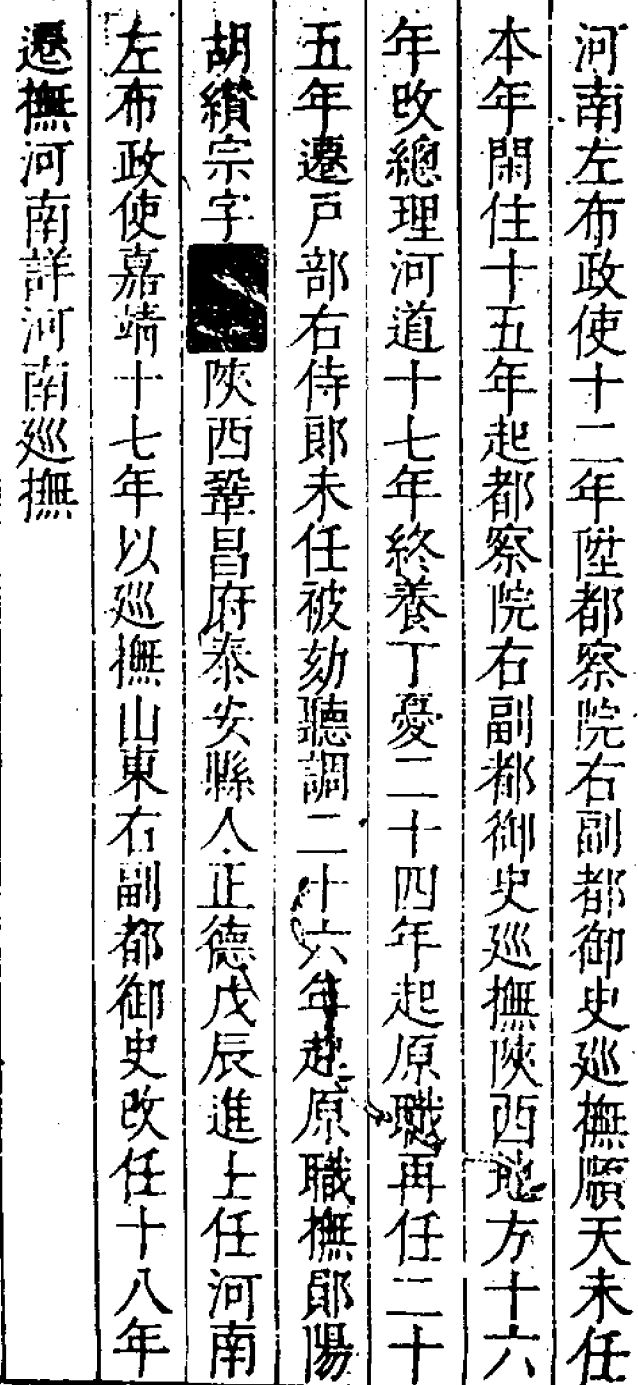 河南左布政使十二年陞都察院右副都御史廵撫順天未任
本年閑住十五年起都察院右副都御史廵撫陜西地方十六
年改總理河道十七年終養丁憂二十四年起原職再任二十
五年遷戸部右侍郎未任被劾聽調二十六年起原職撫鄖陽
胡纉宗字陜西鞏昌府泰安縣人正德戊辰進士任河南
左布政使嘉靖十七年以廵撫山東右副都御史改任十八年
遷撫河南詳河南廵撫